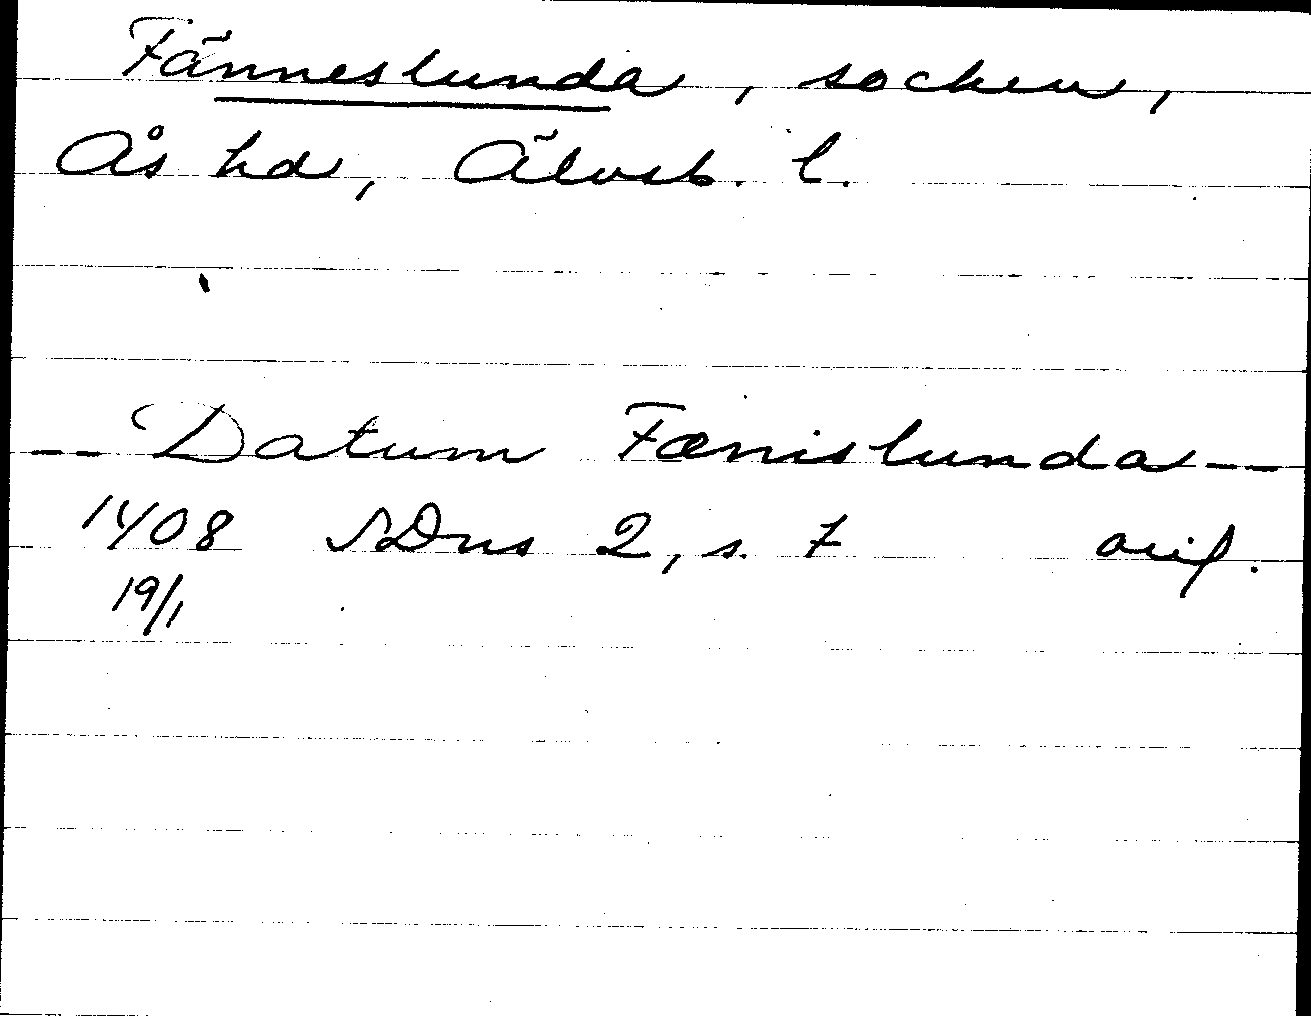 Fänneslunda, socken,
Ås hd, Älvsb. l.
-- Datum Fænislunda --
1408 SDns 2, s. 7 orig.
19/1